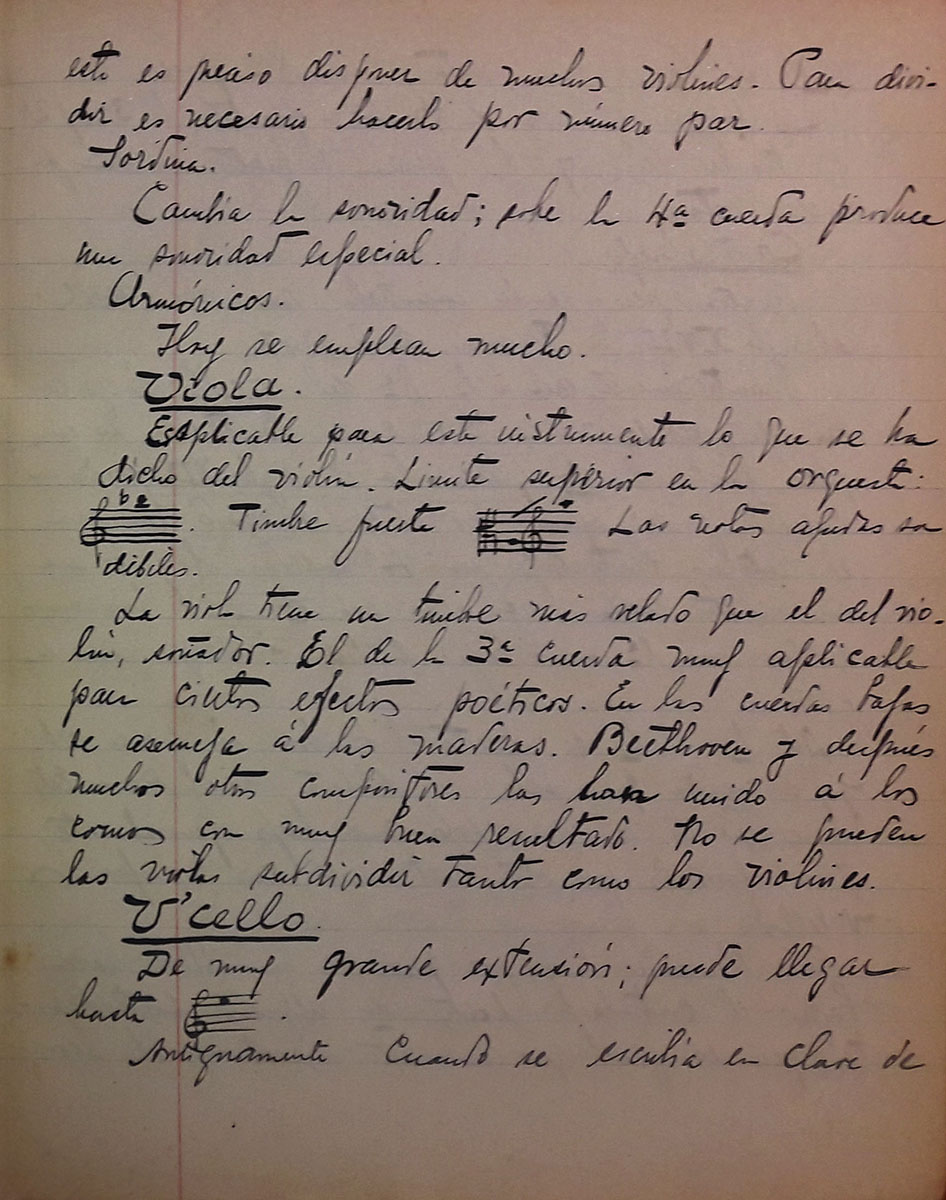 esto es preciso disponer de muchos violines. Para divi-
dir es necesario hacerlo por número par.
Sordina.
Cambia la sonoridad; sobre la 4ª cuerda produce
una sonoridad especial.
Armónicos.
Hoy se emplean mucho.
Viola.
Es aplicable para este instrumento lo que se ha
dicho del violín. Límite superior en la orquesta:
. Timbre fuerte Las notas agudas son
débiles.
La viola tiene un timbre más velado que el del vio-
lín, soñador. El de la 3ª cuerda muy aplicable
para ciertos efectos poéticos. En las cuerdas bajas
se asemeja á las maderas. Beethoven y después
muchos otros compositores las han unido á los
cornos con muy buen resultado. No se pueden
las violas subdividir tanto como los violines.
V'cello.
De muy grande extensión; puede llegar
hasta .
Antiguamente cuando se escribía en clave de